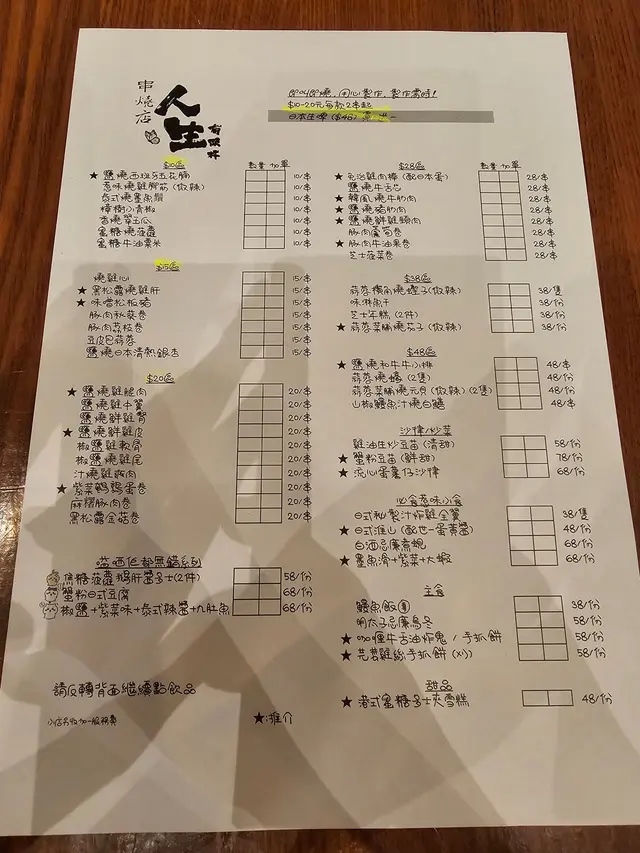 串燒店
人生
有限杯
即叫即燒，用心製作，製作需時！
$10-20元每款2串起
日本生啤 ($46)
$10區
數量 加單
★ 鹽燒西班牙五花腩 10/串
惹味燒雞腳筋(微辣) 10/串
泰式燒墨魚鬚 10/串
樟樹小青椒 10/串
香燒翠玉瓜 10/串
蜜糖燒菠蘿 10/串
蜜糖牛油粟米 10/串
$15區
燒雞心 15/串
★ 黑松露燒雞肝 15/串
★ 味噌松板豬 15/串
豚肉秋葵卷 15/串
豚肉荔枝卷 15/串
豆皮巴蒜蓉 15/串
鹽燒日本清熱銀杏 15/串
$20區
★ 鹽燒雞腿肉 20/串
鹽燒雞中翼 20/串
鹽燒鮮雞腎 20/串
★ 鹽燒鮮雞皮 20/串
椒鹽燒雞軟骨 20/串
椒鹽燒雞尾 20/串
汁燒雞頸肉 20/串
★ 紫菜鵪鶉蛋卷 20/串
麻糬豚肉卷 20/串
黑松露金菇卷 20/串
當西佢都無錯系列
焦糖菠蘿鵝肝醬多士(2件) 58/份
蟹粉日式豆腐 68/份
椒鹽+紫菜味+泰式辣醬+九肚魚 68/份
請反轉背面繼續點飲品
小店另收加一服務費
★:推介
$28區
數量 加單
★ 免治雞肉棒 (配日本蛋) 28/串
鹽燒牛舌芯 28/串
★ 韓風燒牛肋肉 28/串
★ 鹽燒豬肋肉 28/串
★ 鹽燒鮮雞頸肉 28/串
豚肉蘆筍卷 28/串
★ 豚肉牛油果卷 28/串
芝士菠菜卷 28/串
$38區
蒜蓉燒蟶子(微辣) 38/隻
味淋魚干 38/份
芝士年糕 (2件) 38/份
★ 蒜蓉菜脯燒茄子(微辣) 38/份
$48區
★ 鹽燒和牛牛小排 48/串
蒜蓉燒蠔 (2隻) 48/份
蒜蓉菜脯燒元貝(微辣)(2隻) 48/份
山椒鰻魚汁燒白鱔 48/串
沙律/炒菜
雞油庄炒豆苗 (清甜) 58/份
★ 蟹粉豆苗 (鮮甜) 78/份
★ 流心蛋薯仔沙律 68/份
必食惹味小食
日式秘製汁炸雞全翼 38/隻
★ 日式淮山 (配世一蛋黃醬) 48/份
白酒忌廉煮蜆 68/份
★ 墨魚滑+紫菜+大蝦 68/份
主食
鰻魚飯 38/份
明太子忌廉烏冬 58/份
★ 咖喱牛舌油炸鬼 / 手抓餅 58/份
★ 芫茜雞絲手抓餅 (XL) 58/份
甜品
★ 港式蜜糖多士夾雪糕 48/份